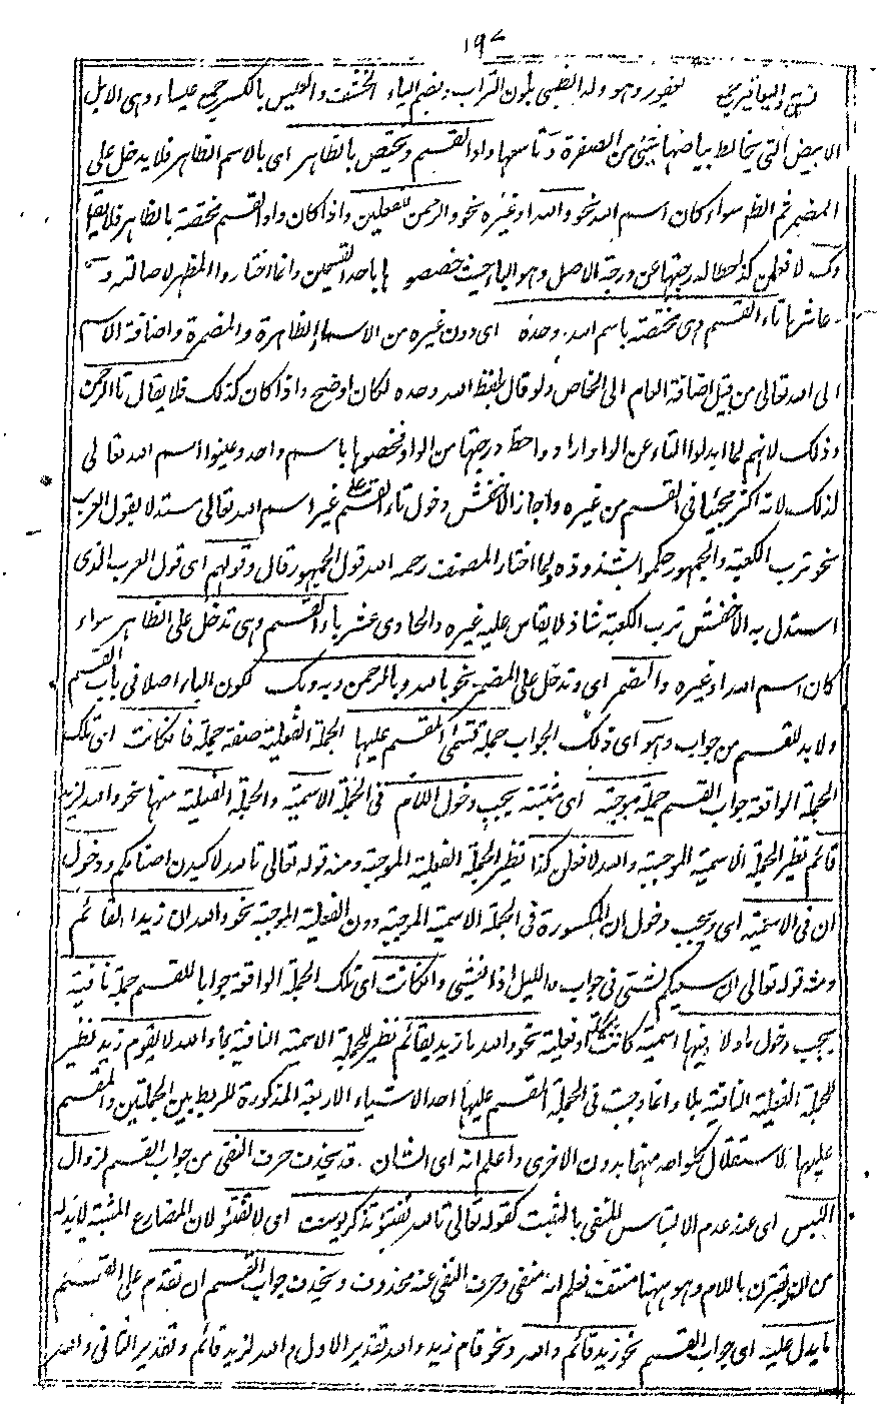 ١٩٧
تسقى واليعافير جمع يعفور وهو ولد الظبى بلون التراب بضم الياء الخشف والعيس بالكسر جمع عيساء وهى الابل
الابيض التى يخالط بياضها شيئ من الصفرة وتاسعها واو القسم وتختص بالظاهر اى بالاسم الظاهر فلا يدخل على
المضمر ثم الظ سواء كان اسم الله نحو والله او غيره نحو والرحمن لافعلن واذا كان واو القسم مختصة بالظاهر فلا يقا
وك لا فعلن كذا لحطا له درجتها عن درجة الاصل وهو الباء حيث خصصو ها باحد القسمين وانما اختاروا المظهر لاصالته و
عاشرها تاء القسم وهى مختصة باسم الله وحده اى دون غيره من الاسماء الظاهرة والمضمرة واضافة الاسم
الى الله تعالى من قبيل اضافة العام الى الخاص ولو قال بلفظ الله وحده لكان اوضح واذا كان كذلك فلا يقال تالرحمن
وذلك لانهم لما ابدلوا التاء عن الواو ارادوا حط درجتها من الواو فخصوها باسم واحد وعينوا اسم الله تعالى
لذلك لانه اكثر مجيئا فى القسم من غيره واجاز الاخفش دخول تاء القسم على غير اسم الله تعالى مستدلا بقول العرب
نحو ترب الكعبة والجمهور حكموا بشذوذه ولما اختار المصنف رحمه الله قول الجمهور قال وقولهم اى قول العرب الذى
استدل به الاخفش ترب الكعبة شاذ لا يقاس عليه غيره والحادى عشر باء القسم وهى تدخل على الظاهر سواء
كان اسم الله او غيره والمضمر اى وتدخل على المضمر نحو بالله وبالرحمن وبه وبك لكون الباء اصلا فى باب القسم
ولا بد للقسم من جواب وهو اى ذلك الجواب جملة تسمى المقسم عليها الجملة الفعلية صفة جملة فان كانت اى تلك
الجملة الواقعة جواب القسم جملة موجبة اى مثبتة يجب دخول اللام فى الجملة الاسمية والجملة الفعلية منها نحو والله لزيد
قائم نظير الجملة الاسمية الموجبة والله لافعلن كذا نظير الجملة الفعلية الموجبة ومنه قوله تعالى تالله لاكيدن اصنامكم ودخول
ان فى الاسمية اى ويجب دخول ان المكسورة فى الجملة الاسمية الموجبة دون الفعلية الموجبة نحو والله ان زيدا لقائم
ومنه قوله تعالى ان سعيكم لشتى فى جواب والليل اذا يغشى وان كانت اى تلك الجملة الواقعة جوابا للقسم جملة نافية
يجب دخول ما ولا فيها اسمية كانت الجملة او فعلية نحو والله ما زيد بقائم نظير للجملة الاسمية النافية بما والله لا يقوم زيد نظير
للجملة الفعلية النافية بلا وانما وجبت فى الجملة المقسم عليها احد الاشياء الاربعة المذكورة للربط بين الجملتين والمقسم
عليها لاستقلال كلواحد منهما بدون الاخرى واعلم انه اى الشان قد يحذف حرف النفى من جواب القسم لزوال
اللبس اى عند عدم الالتباس للنفى بالمثبت كقوله تعالى تالله تفتؤ تذكر يوسف اى لا تفتؤ لان المضارع المثبتة لا بد له
من ان يقترن باللام وهو ههنا منتف فعلم انه منفى وحرف النفى عنه محذوف ويحذف جواب القسم ان تقدم على القسم
ما يدل عليه اى جواب القسم نحو زيد قائم والله ونحو قام زيد والله تقدير الاول والله لزيد قائم وتقدير الثانى والله